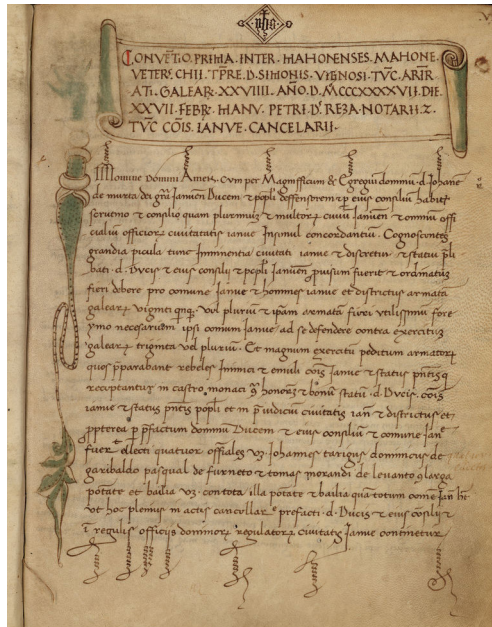 CONVĒTIO. PRIMA. INTER. MAHONENSES. MAHONE.
VETERS. CHII. TPRE. D. SIMONIS. VIGNOSI. TVC. ARĪR
ATI. GALEAR. XXVIIII. AÑO. D. MCCCXXXXVII. DIE
XXVII. FEBR. MANV. PETRI. D'. REZA. NOTARII. ⁊.
TVC COĪS. IANVE. CANCELARII.
Nomine Domini Amen. Cum per Magnifficum & Egregiū dominū. d. Johanē
de murta dei grā Januēn Ducem ⁊ popli deffensorem ⁊ eius consiliū habit
⁊ consilio quam plurimū ⁊ multoꝝ ciuiū Januēn ⁊ omniū offi
cialiū officioꝝ ciuitatis ianue Insimul concordantiū. Cognoscentes
grandia picula tunc Imminentia ciuitati ianue ⁊ districtui ⁊ statui
bati. d. Ducis ⁊ eius consilij ⁊ popli Januēn puisum fuerit ⁊ ordinatū
fieri debere pro comune Janue ⁊ homines ianue et districtus armatā
galeaꝝ viginti qnqꝫ vel pluriū ⁊ ipam armatā fuisi vtilissimū fore
ymo necesariam ipsi comuni ianue ad se defendere contra exercitū
galeaꝝ triginta vel pluriū. Et magnum exercitū peditum armatoꝝ
quos pparabant rebeles Inimici ⁊ emuli coīs Janue ⁊ status pntis q
receptantur in castro monaci ꝯ honorē ⁊ bonū statū. d. Ducis. coīs
ianue ⁊ status pntis popli et in p iudiciū ciuitatis ian ⁊ districtus et
ppterea p pfactum dominū Ducem ⁊ eius consiliū ⁊ comune Jan
fuer ellecti quatuor offiales vꝫ. Johannes tarigus dominicus de
garibaldo pasqual de furneto ⁊ tomas morandi de leuanto ꝯ larga
potāte et bailia vꝫ. con tota illa potāte ⁊ bailia qua totum comē Jan ht
vt hoc plenius in actis cancellar prefacti. d. Ducis ⁊ eius cosilij ⁊
ī regulis officijs dominoꝝ regulatoꝝ ciuitatis Janue continetur